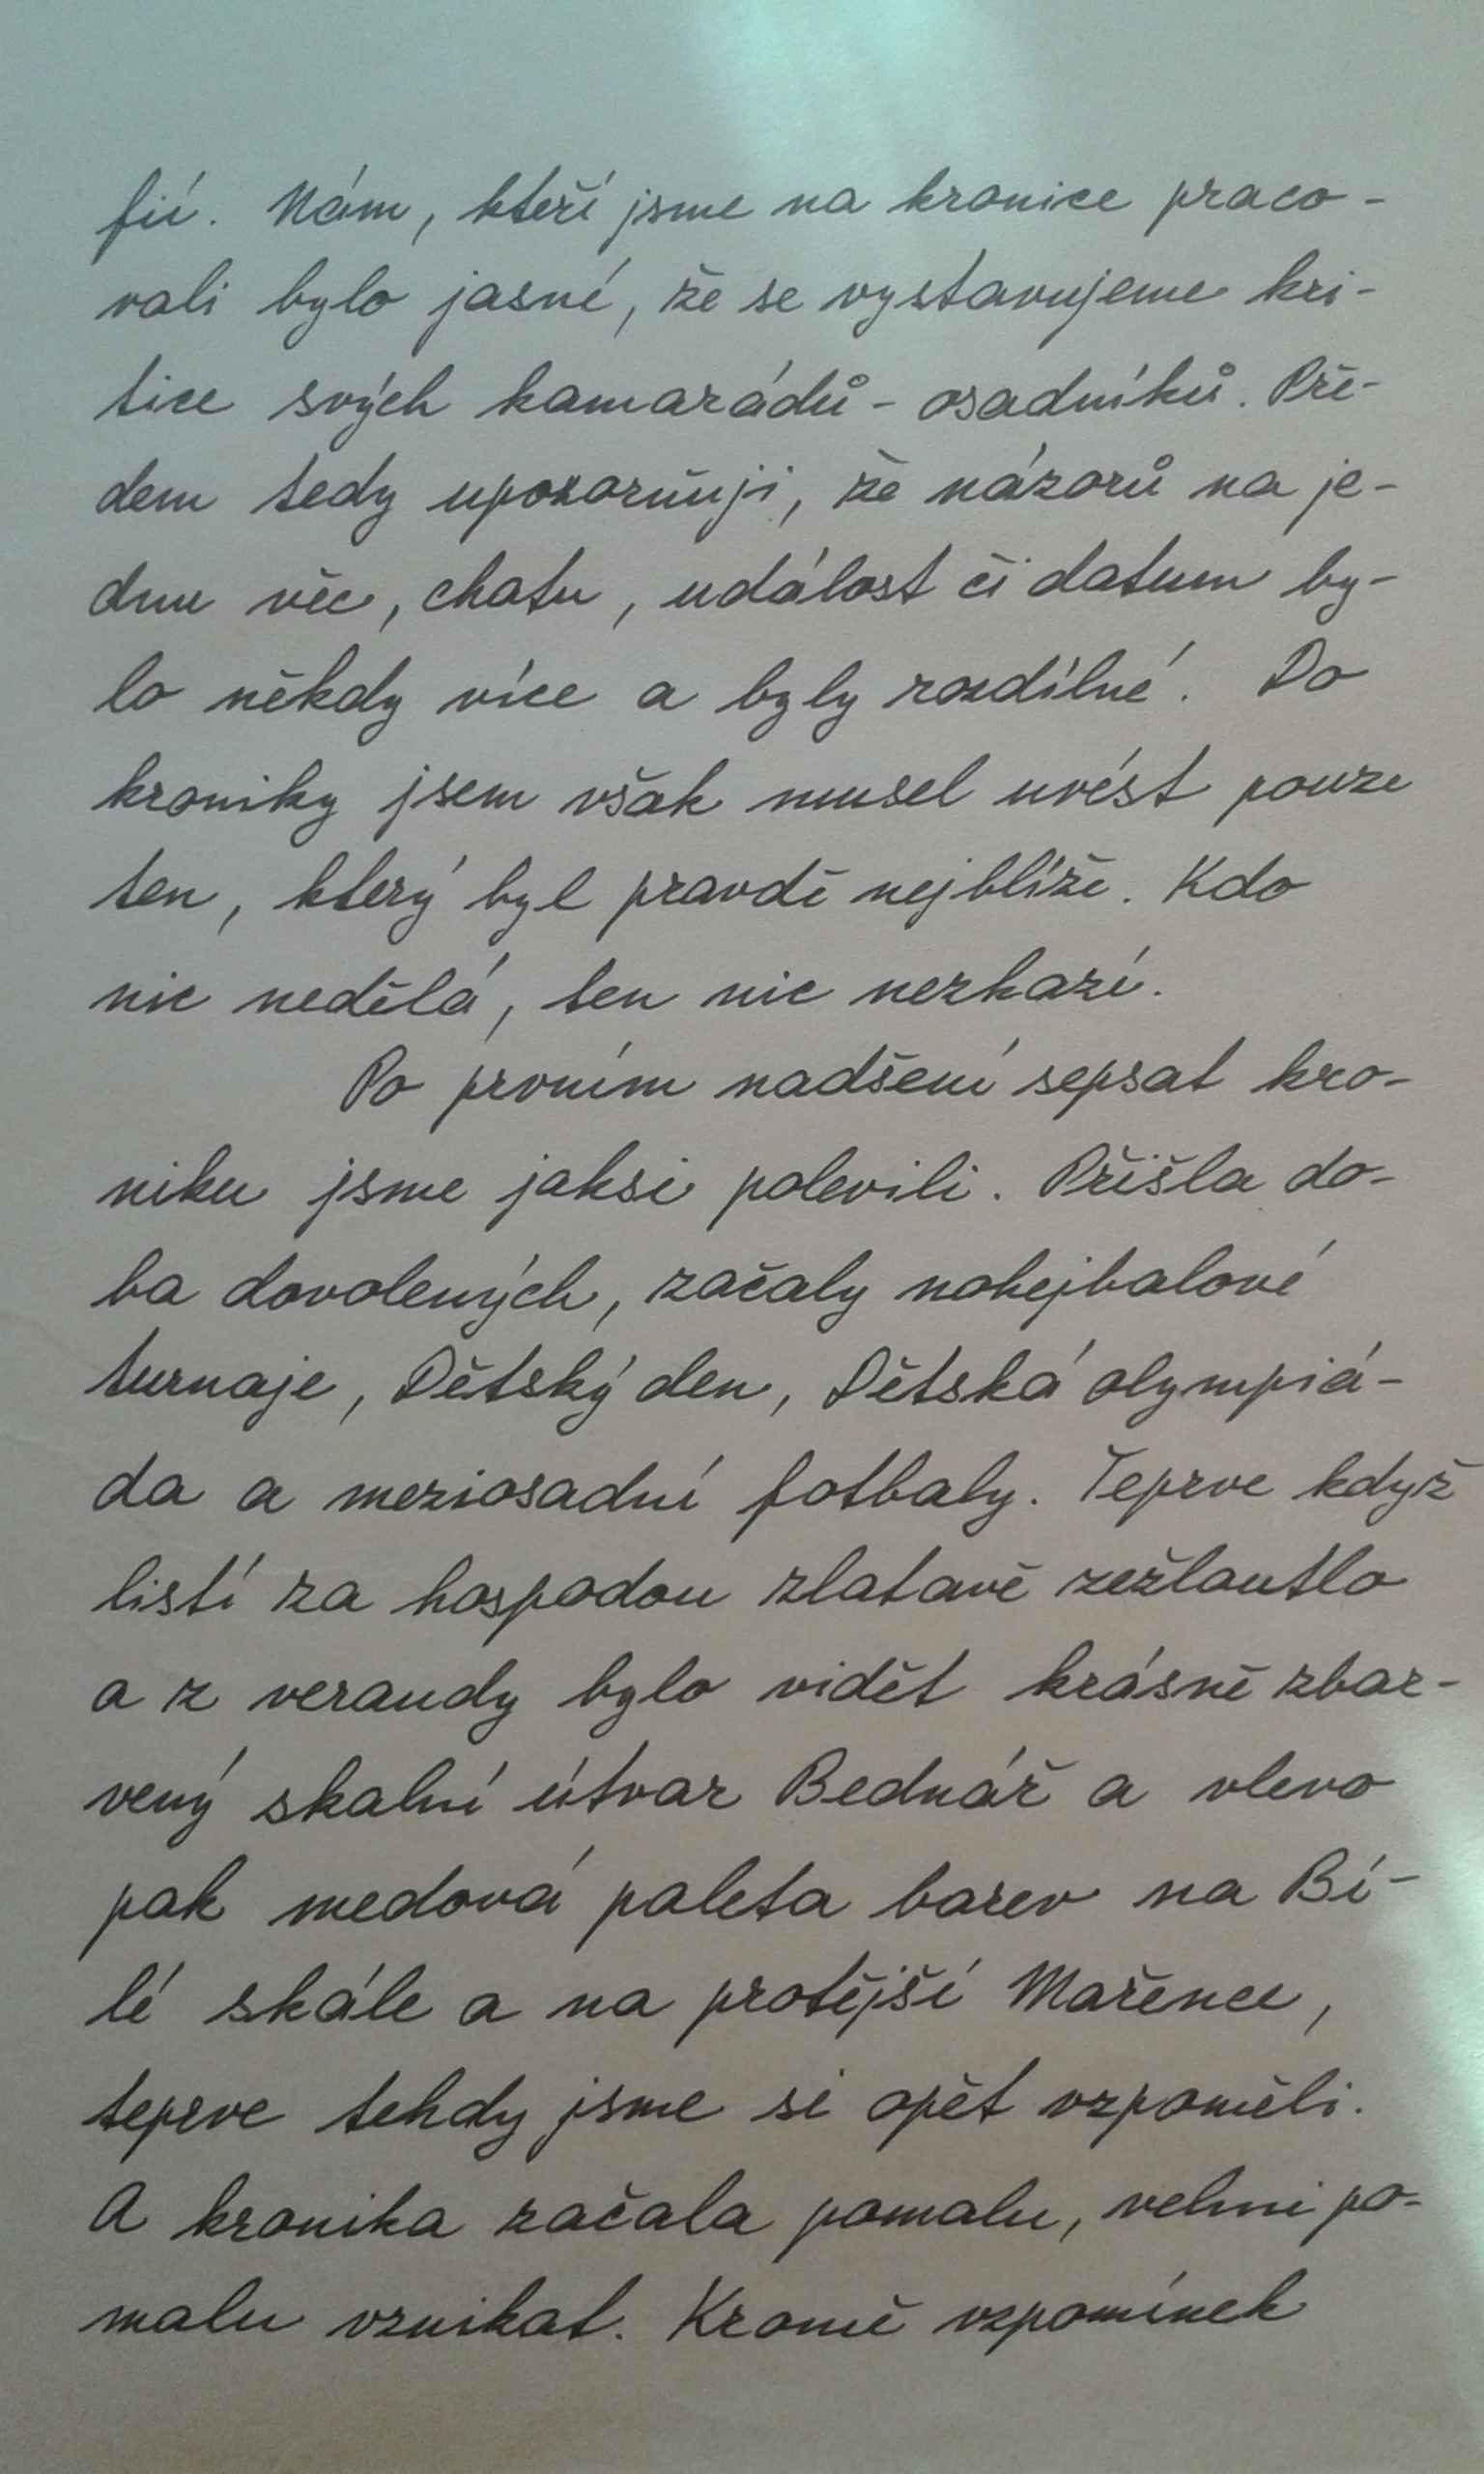 fií. Nám, kteří jsme na kronice praco-
vali bylo jasné, že se vystavujeme kri-
tice svých kamarádů - osadníků. Pře-
dem tedy upozorňuji, že názorů na je-
dnu věc, chatu, událost či datum by-
lo někdy více a byly rozdílné. Do
kroniky jsem však musel uvést pouze
ten, který byl pravdě nejblíže. Kdo
nic nedělá, ten nic nezkazí.
Po prvním nadšení sepsat kro-
niku jsme jaksi polevili. Přišla do-
ba dovolených, začaly nohejbalové
turnaje, Dětský den, Dětská olympiá-
da a meziosadní fotbaly. Teprve když
listí za hospodou zlatavě zežloutlo
a z verandy bylo vidět krásně zbar-
vený skalní útvar Bednář a vlevo
pak medová paleta barev na Bí-
lé skále a na protější Mařence,
teprve tehdy jsme si opět vzpoměli.
A kronika začala pomalu, velmi po-
malu vznikat. Kromě vzpomínek